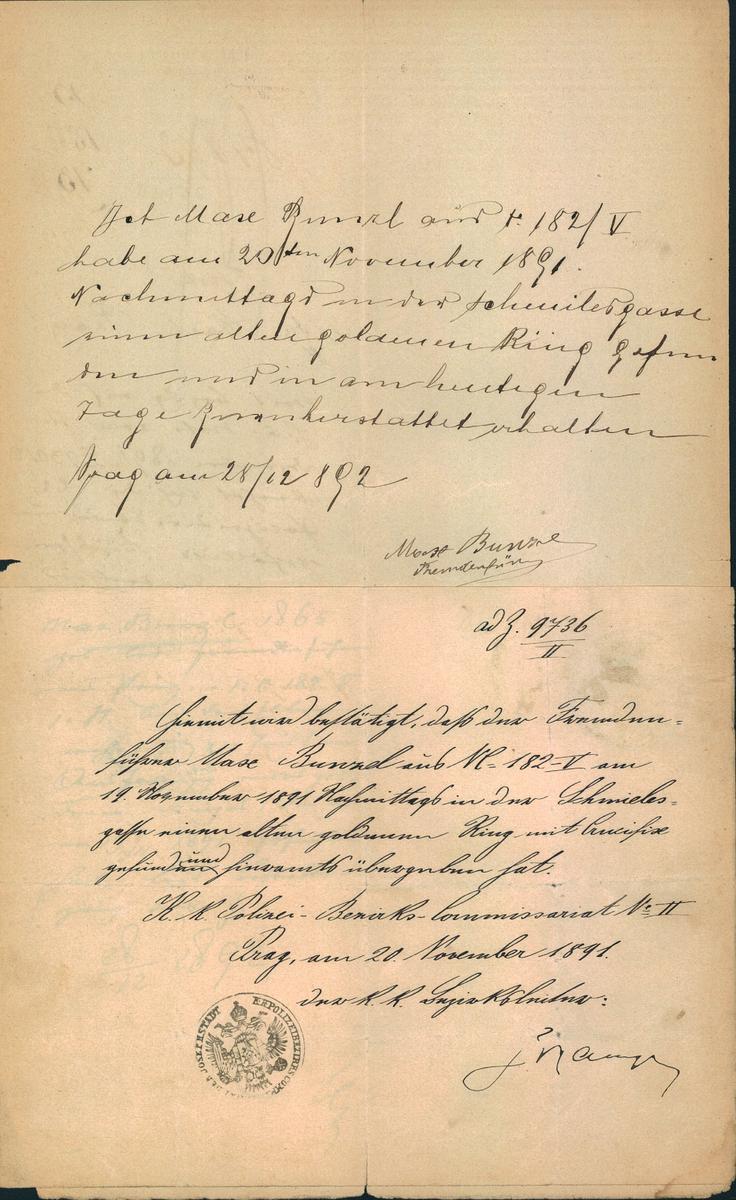 Ich Max Bunzl aus N. 182/V
habe am 20ten November 1891.
Nachmittags in der Schmilesgasse
einen alten goldenen Ring gefun
den und in am heutigen
Tage zurückerstattet erhalten
Prag am 28/12 892
Max Bunzel
Fremdenführ
ad Z. 9736
II
Hiemit wird bestätigt, daß der Fremden=
führer Max Bunzel aus N= 182-V am
19. November 1891 Nachmittags in der Schmieles=
gasse einen alten goldenen Ring mit Crucifix
gefunden und hieramts übergeben hat.
K. k. Polizei-Bezirks-Commissariat No II
Prag, am 20. November 1891.
der k. k. Bezirksleiter:
DER JOSEFSTADT